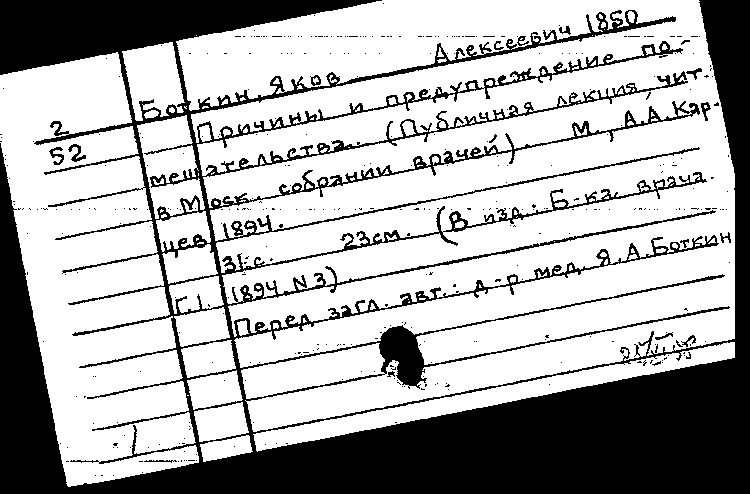 2
52
Боткин, Яков Алексеевич, 1850
Причины и предупреждение по-
мешательства. (Публичная лекция, чит.
в Моск. собрании врачей). М., А.А. Кар-
цев, 1894.
31 с. 23см. (В изд.: Б-ка врача.
Г.1. 1894. N3).
Перед загл. авт.: д-р мед. Я.А. Боткин